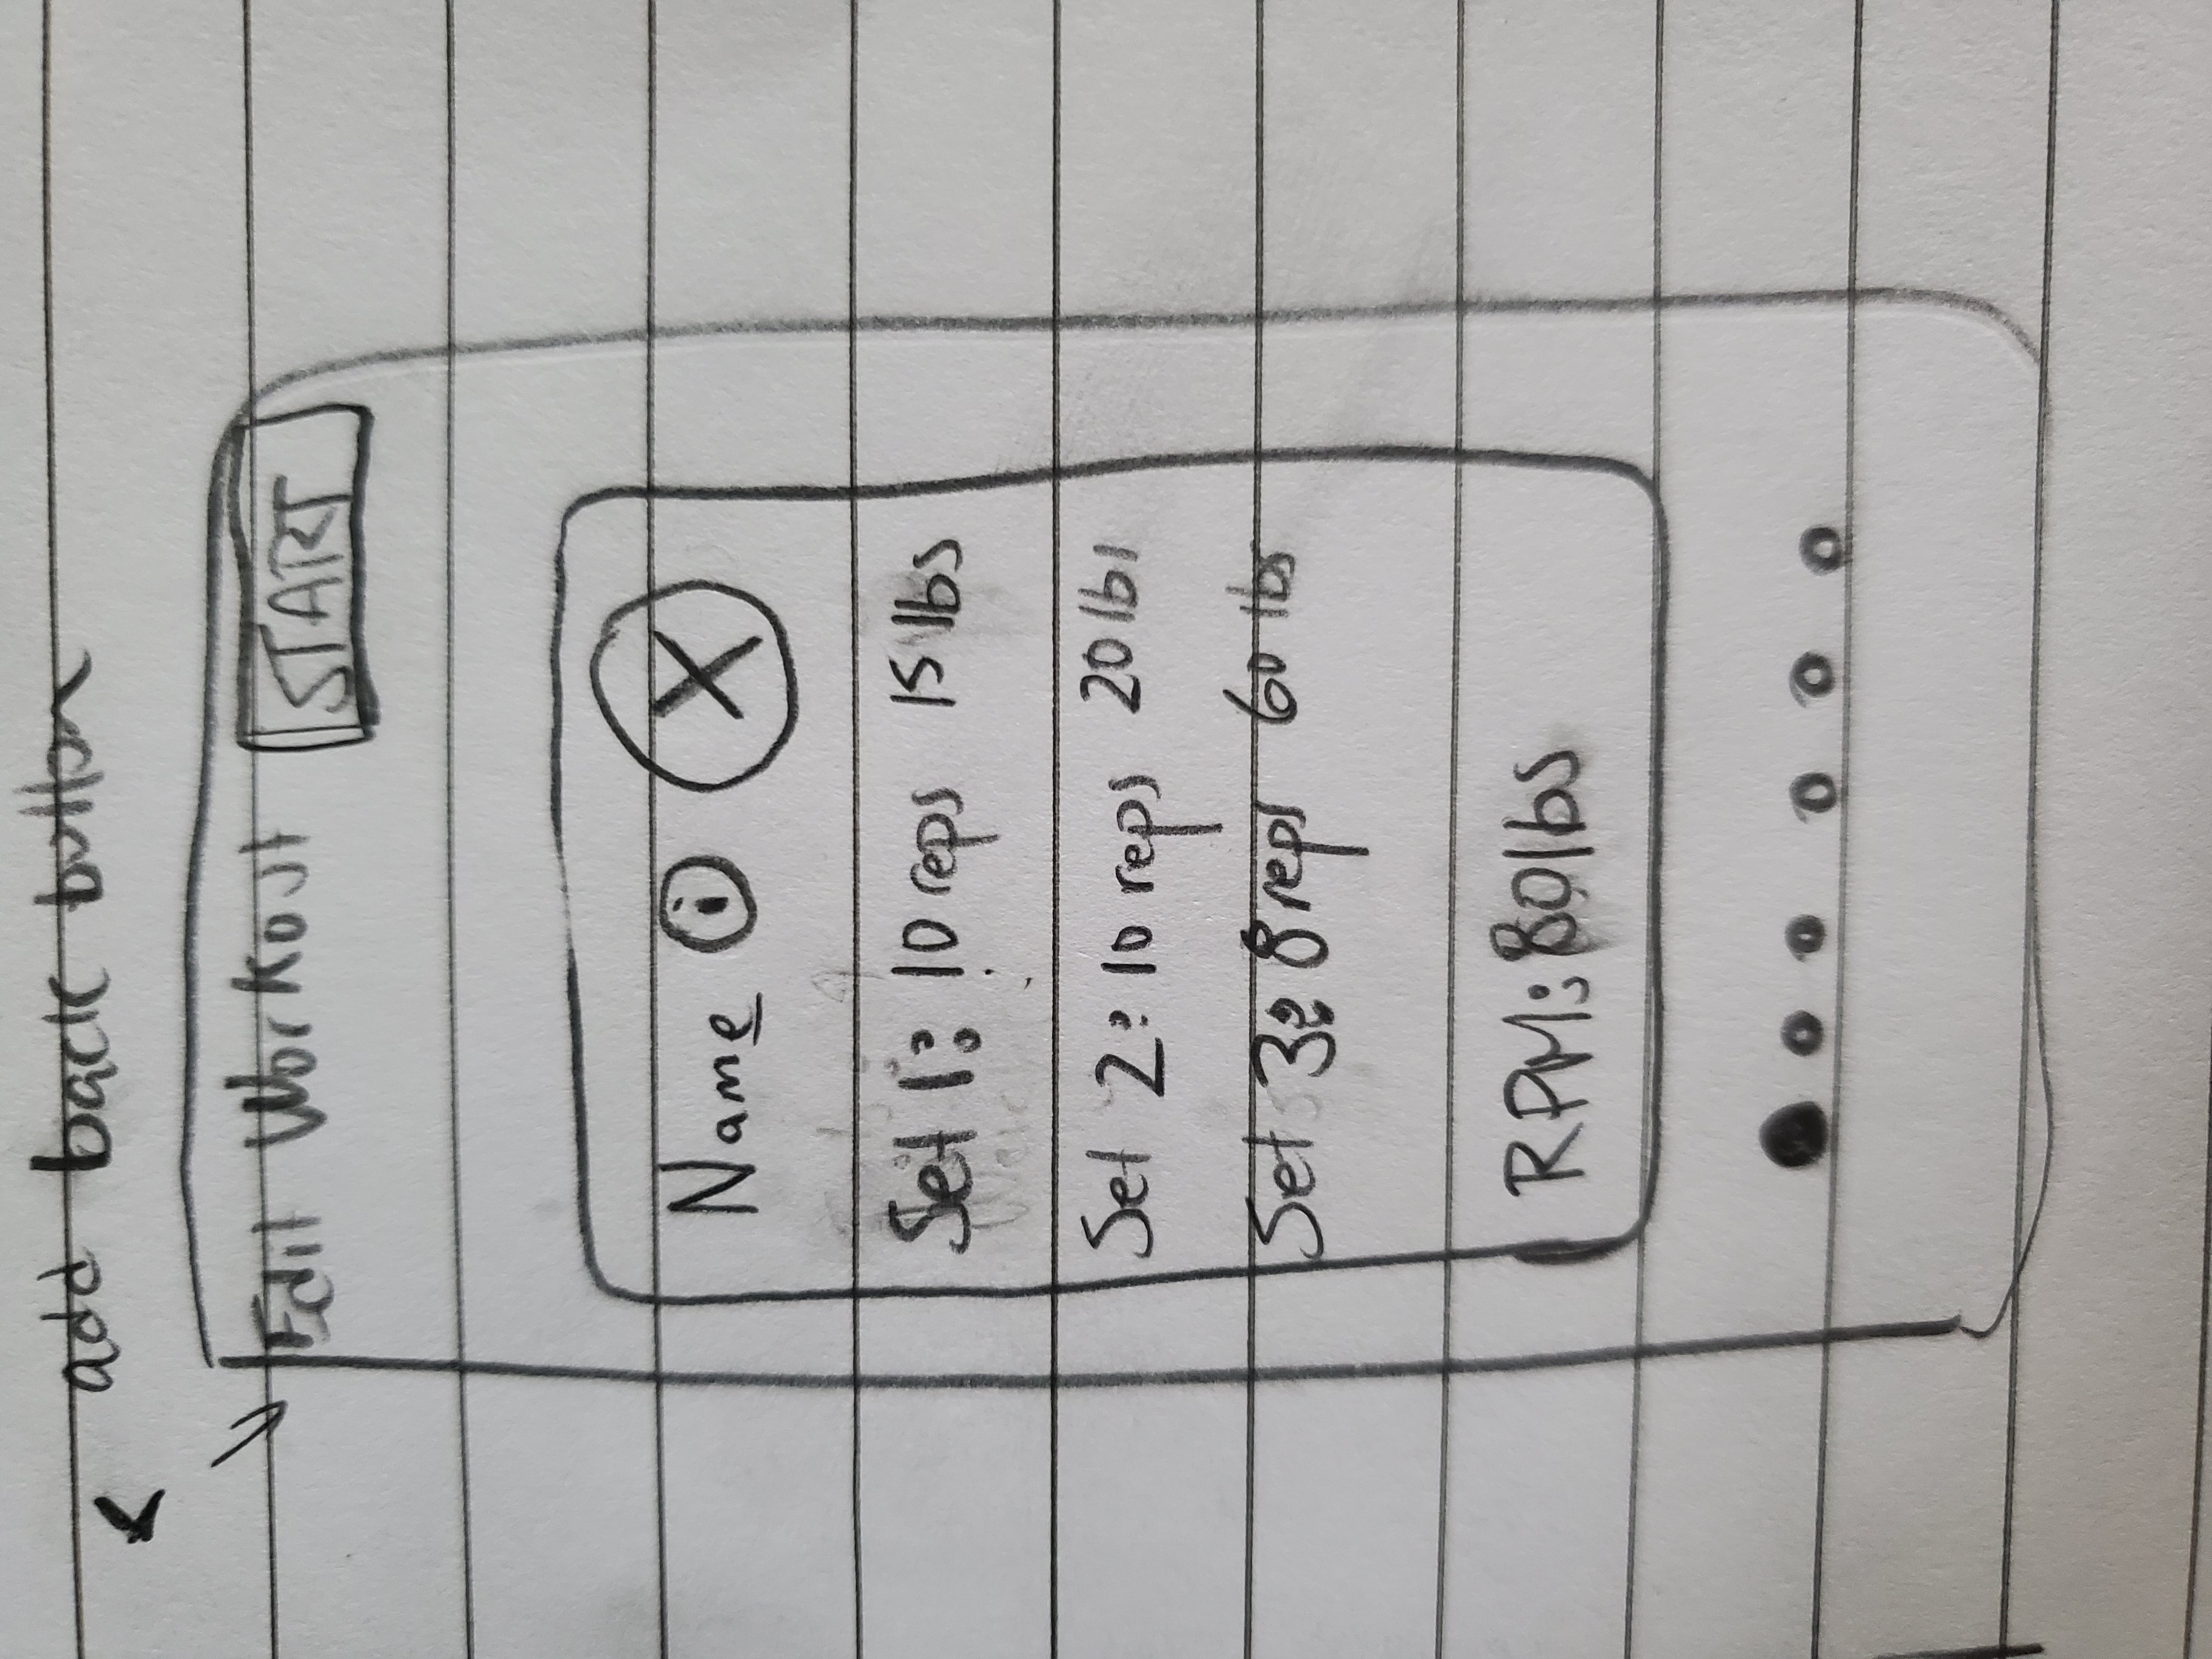 add back button
<
Edit Workout START
Name i X
Set 1: 10 reps 15 lbs
Set 2: 10 reps 20 lbs
Set 3: 8 reps 60 lbs
RPM: 80 lbs